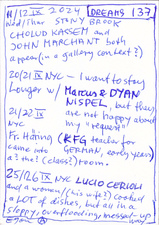 11/12 IX 2024 DREAMS 137
STONY BROOK
CHOLUD KASSEM and
JOHN MARCHANT both
appear (in a gallery context?)
20/21 IX NYC - I want to stay
longer w/ Marcus & DYAN
NISPEL, but they
21/22 IX are not happy about
NYC my "request"
Fr. Häring (KFG teacher for
came into GERMAN, early years)
a the? (class?) room.
25/26 IX NYC LUCIO CERIOLI
and a women/(his wife?) cooked
a LOT of dishes, but all in a
sloppy, overflooding, messed-up
way